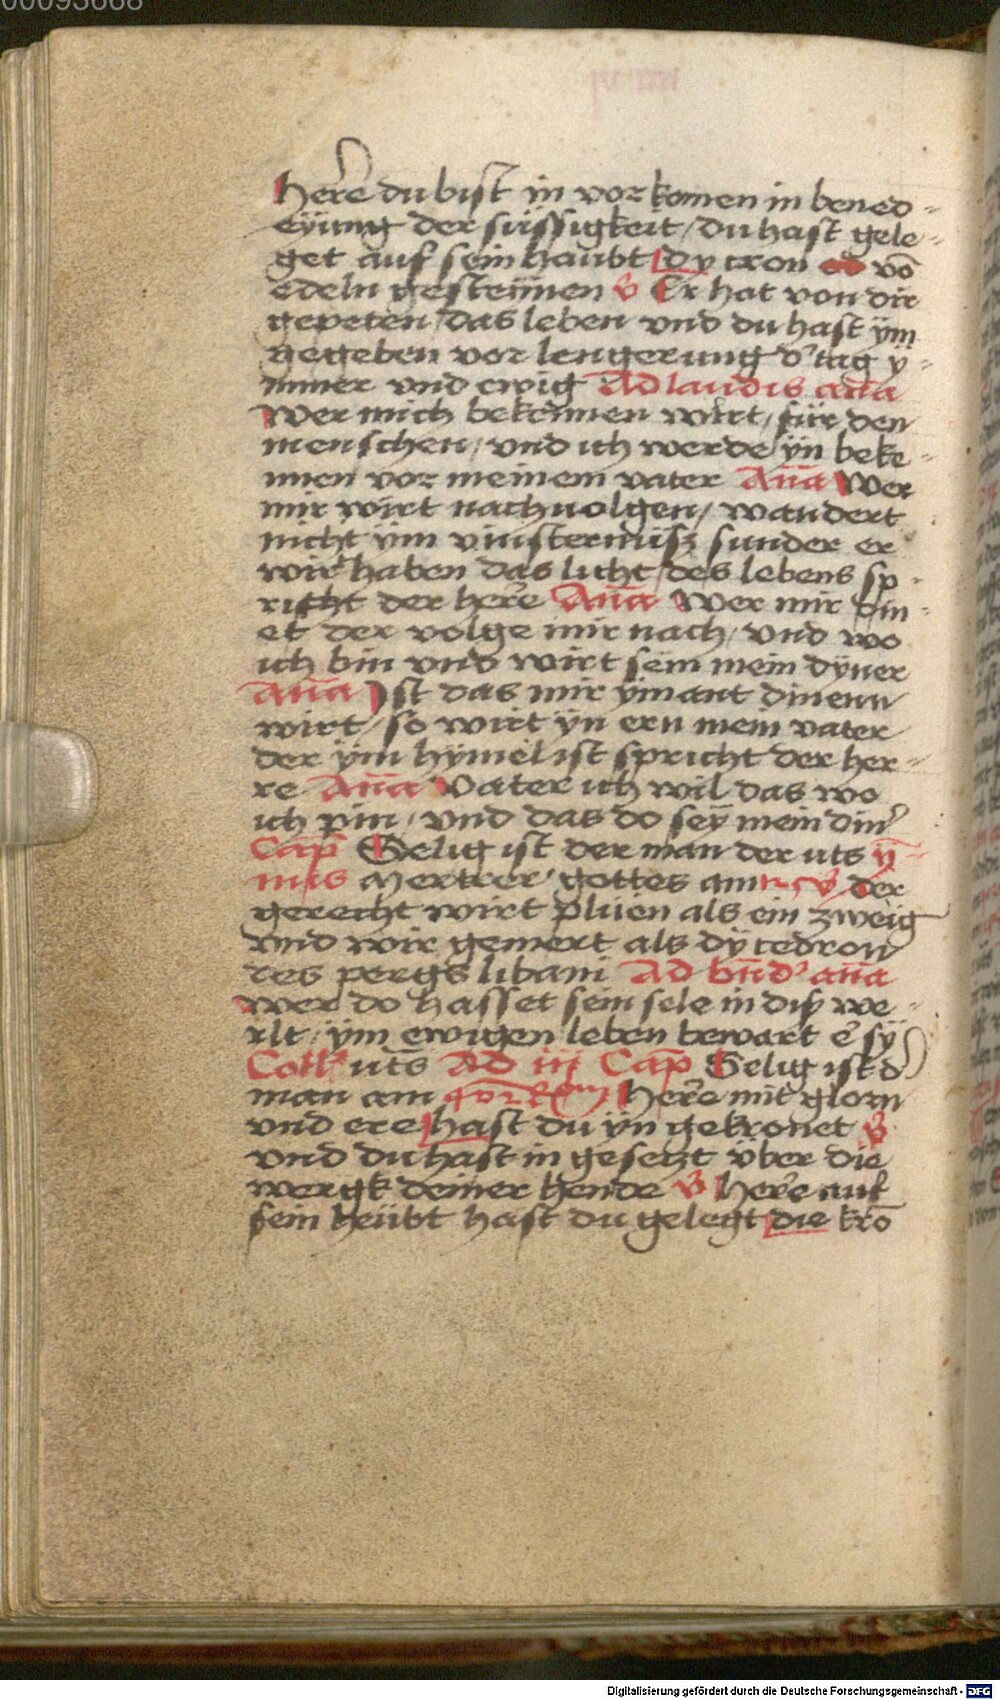 00093668
Here du bist in vorkomen in bened-
eyung der süssigkeit / du hast gele-
get auf sein haubt dy cron vō
edeln gesteinen v̄ Er hat von dir
gepeten / das leben vnd du hast ÿm
gegeben vor lengerung d' tag y-
mmer vnd ewig Ad laudis an̄a
Wer mich bekennen wirt / für den
menschen / vnd ich werde ÿn beke-
nnen vor meinem vater An̄a Wer
mir wirt nachuolgen / wandert
nicht ÿm vinsternüsz sunder er
wir haben das licht / des lebens sp-
richt der here An̄a Wer mir din-
et der volge mir nach / vnd wo
ich bin vnd wirt sein mein dÿner
An̄a Ist das mir ÿmant dinenn
wirt / so wirt ÿn ern mein vater
der ÿm hÿmel ist spricht der her-
re An̄a Vater ich wil das wo
ich pin / vnd das do seÿ mein din'
Cap̄ Selig ist der man der uts
Mertrer gottes am v̄ der
gerecht wirt plüen als ein zweig
vnd wir gemert als dÿ cedron
des pergs libani Ad bn̄d' an̄a
wer do hasset sein sele in diser we-
rlt / ÿm ewigen leben bewart e' sÿ
Coll' uts Ad iij Cap̄ Selig ist d'
man am Here mit glorn
vnd ere hast du ÿn gekronet v̄
vnd du hast in gesetzt über die
wergk deiner hende v̄ Here auf
sein heübt hast du gelegt die krō
Digitalisierung gefördert durch die Deutsche Forschungsgemeinschaft - DFG